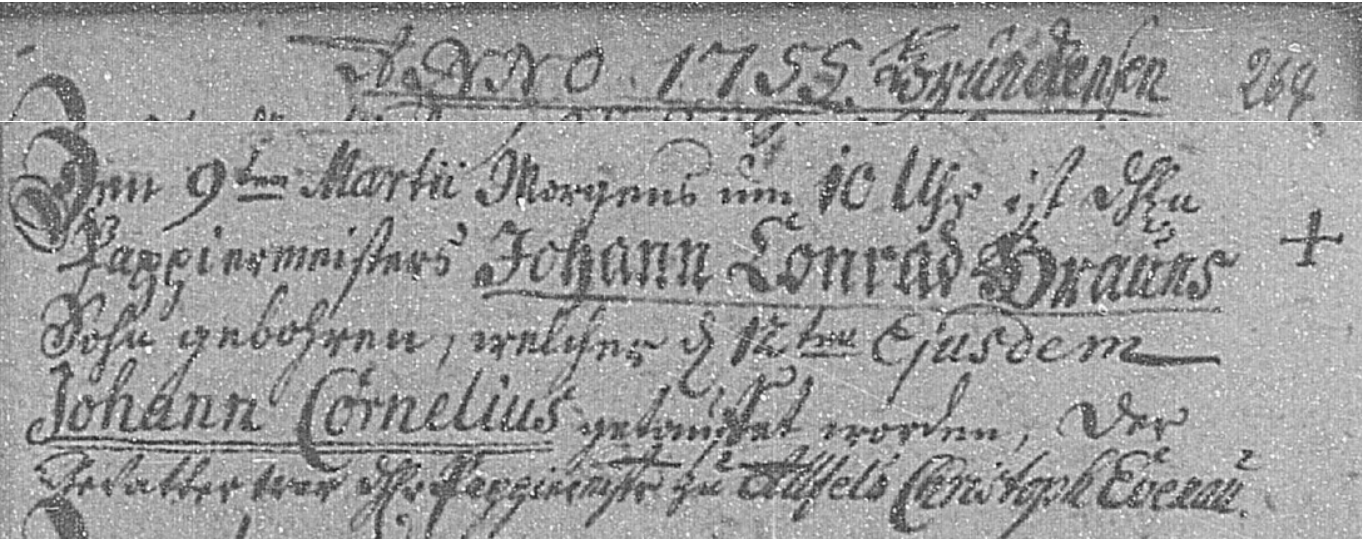 ANNO 1755. Gründensen 264
Den 9ten Martii Morgens um 10 Uhr ist dHn
Pappiermeisters Johann Conrad Brauns
Sohn gebohren, welcher d 12ten Ejusdem
Johann Cornelius getauffet worden, Der
Gevatter war dHr Pappierm zu Allfeld Christoph Evenau.